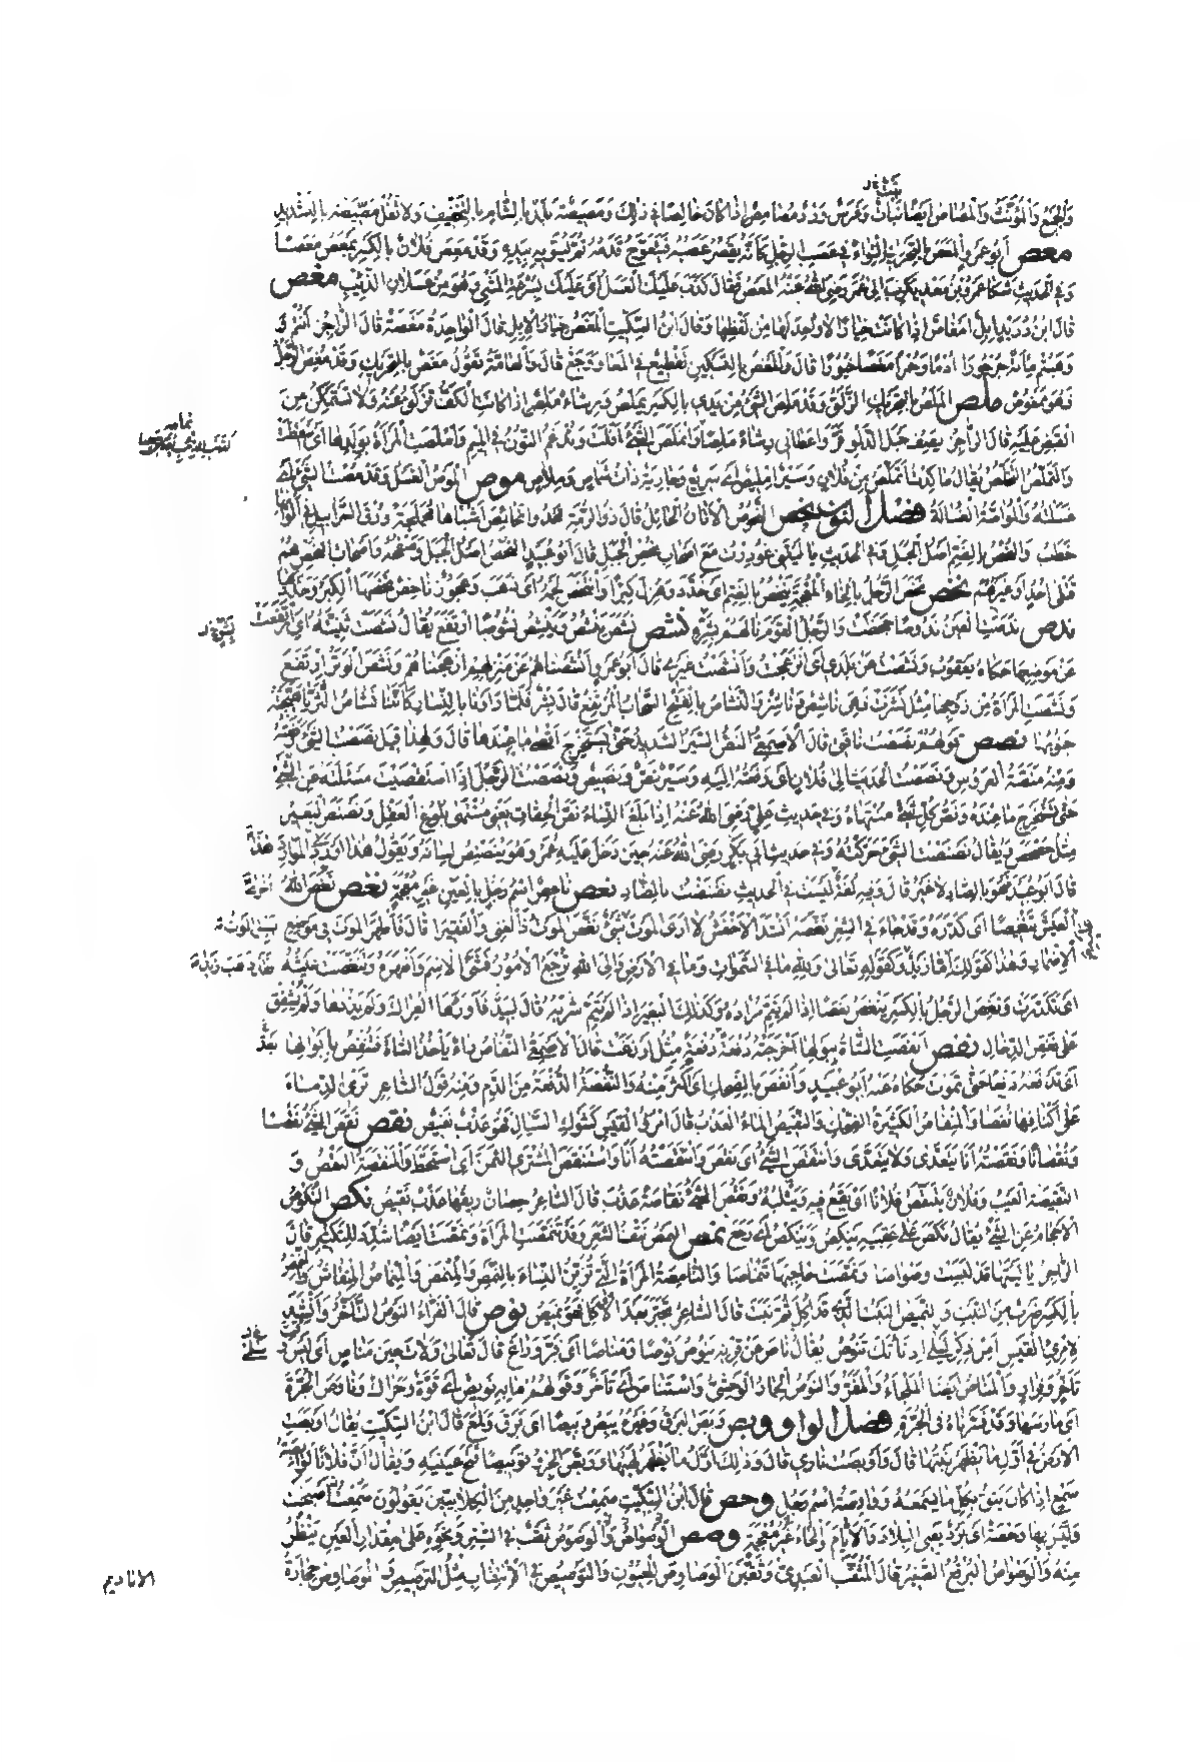 والجمع والمؤنث والمصاص ايضا نبات وفرس ورد مصامص اذا كان خالصا في ذلك ومصيصة بلد بالشام بالتخفيف ولا تقل مصيصة بالتشديد
معص ابو عمرو المعص بالتحريك التواء في عصب الرجل كانه يقصر عصبه فتتعوج قدمه ثم يسويه بيده وقد معص فلان بالكسر يمعص معصا
وفي الحديث شكا عمرو بن معدي كرب الى عمر رضي الله عنه المعص فقال كذب عليك العسل اي عليك بسرعة المشي وهو من عسلان الذئب مغص
قال ابن دريد ابل امغاص اذا كانت خيارا لا واحد لها من لفظها وقال ابن السكيت المغص خيار الابل قال الواحدة مغصة قال الراجز انتم و
وهبتم مائة جرجورا ادما وحمرا مغصا خبورا قال والمغص بالتسكين تقطيع في المعا ووجع قال والعامة تقول مغص بالتحريك وقد مغص الرجل
فهو ممغوص ملص الملص بالتحريك الزلق وقد ملص الشيء من يدي بالكسر يملص ورشاء ملص اذا كانت الكف تزلق عنه ولا تستمكن من
القبض عليه قال الراجز يصف حبل الدلو فر واعطاني رشاء ملصا وانملص الشيء افلت وتدغم النون في الميم واملصت المرأة بولدها اي اسقطت
والتملص التخلص يقال ما كدت اتملص من فلان وسير امليص اي سريع وجارية ذات شماص وملاص موص الموص الغسل وقد مصت الشيء اي
غسلته والمواصة الغسالة فصل النون نحص النحوص الاتان الحائل قال ذو الرمة
خطب والنحص بالضم اصل الجبل وفي الحديث يا ليتني غودرت مع اصحاب نحص الجبل قال ابو عبيد النحص اصل الجبل وسفحه واصحاب النحص هم
قتلى احد او غيرهم نخص نخص الرجل بالخاء المعجمة ينخص بالضم اي خدد وهزل كبرا وانتخص لحمه اي ذهب وعجوز ناخص نخصها الكبر وخددها
ندص ندصت العين ندوصا جحظت والرجل القوم نالهم بشره نشص نشص ينشص وينشص نشوصا ارتفع يقال نشصت ثنيته اي ارتفعت
عن موضعها حكاه يعقوب ونشصت عن بلدي اي انزعجت وانشصت غيري قال ابو عمرو انشصناهم عن منزلهم ازعجناهم ونشص الوتر ارتفع
ونشصت المرأة من زوجها مثل نشزت فهي ناشص وناشز والنشاص بالفتح السحاب المرتفع قال بشر فلما راونا بالنسار كاننا نشاص الثريا هيجته
جنوبها نصص قولهم نصصت ناقتي قال الاصمعي النص السير الشديد حتى يستخرج اقصى ما عندها قال ولهذا قيل نصصت الشيء رفعته
ومنه منصة العروس ونصصت الحديث الى فلان اي رفعته اليه وسير نص ونصيص ونصصت الرجل اذا استقصيت مسئلته عن الشيء
حتى تستخرج ما عنده ونص كل شيء منتهاه وفي حديث علي رضي الله عنه اذا بلغ النساء نص الحقاق يعني منتهى بلوغ العقل ونصنص البعير
مثل حصحص ويقال نصنصت الشيء حركته وفي حديث ابي بكر رضي الله عنه حين دخل عليه عمر وهو ينصنص لسانه ويقول هذا اوردني الموارد
قال ابو عبيد هو بالصاد لا غير قال وفيه لغة ليست في الحديث نضنضت بالضاد نعص ناعص اسم رجل بالعين غير معجمة نغص نغص الله
العيش تنغيصا اي كدره وقد جاء في الشعر نغصه انشد الاخفش لا ارى الموت يسبق الموت شيء نغص الموت ذا الغنى والفقيرا قال فاظهر الموت في موضع
الاضمار وهذا كقولك اما زيد فقد ذهب زيد وكقوله تعالى ولله ما في السموات وما في الارض والى الله ترجع الامور فثنى الاسم واظهره وتنغصت عيشته
اي تكدرت ونغص الرجل بالكسر ينغص نغصا اذا لم يتم مراده وكذلك البعير اذا لم يتم شربه قال لبيد فاوردها العراك ولم يذدها ولم يشفق
على نغص الدخال نفص انفصت الشاة ببولها اخرجته دفعة دفعة مثل اوزغت قال الاصمعي النفاص داء ياخذ الشاء فتنفص بابوالها
اي تدفعه دفعا حتى تموت حكاه عنه ابو عبيد وانفص بالضحك اي اكثر منه والنفصة الدفعة من الدم ومنه قول الشاعر ترمى الدماء
على اكتافها نفصا والمنفاص الكثيرة الضحك والنفيص الماء العذب قال امرؤ القيس كشوك السيال فهو عذب نفيص نقص نقص الشيء نقصا
ونقصانا ونقصته انا يتعدى ولا يتعدى وانتقص الشيء اي نقص وانتقصته انا واستنقص المشتري الثمن اي استحط والمنقصة النقص و
النقيصة العيب وفلان ينتقص فلانا اي يقع فيه ويثلبه نكص النكوص
الاحجام عن الشيء يقال نكص على عقبيه ينكص وينكص اي رجع نمص النمص نتف الشعر وقد تنمصت المرأة ونمصت ايضا شدد للتكثير قال
الراجز يا ليتها قد لبست وصواصا ونمصت حاجبها تنماصا والنامصة المرأة التي تزين النساء بالنمص والمنمص والمنماص المنقاش والنمص
بالكسر ضرب من النبت والنميص النبت الذي قد اكل ثم نبت قال الشاعر تجبر بعد الاكل فهو نميص نوص قال الفراء النوص التأخر وانشد
لامرئ القيس امن ذكر ليلى اذ نأتك تنوص يقال ناص عن قرنه ينوص نوصا ومناصا اي فر وراغ قال تعالى ولات حين مناص اي ليس وقت
تأخر وفرار والمناص ايضا الملجأ والمفر والنوص الحمار الوحشي واستناص اي تأخر وقولهم ما به نويص اي قوة وحراك وناوص الجرة
اي مارسها وقد فسرناه في الجرة فصل الواو وبص وبص البرق وغيره يبص وبيصا اي برق ولمع قال ابن السكيت يقال اوبصت
الارض في اول ما يظهر نبتها قال واوبصت ناري قال وذلك اول ما يظهر لهبها ووبص الجرو توبيصا فتح عينيه ويقال ان فلانا لوابصة
سمع اذا كان يثق بكل ما يسمعه ووابصة اسم رجل وحص قال ابن السكيت سمعت غير واحد من الكلابيين يقولون اصبحت
وليس بها وحصة اي برد يعني البلاد والايام والحاء غير معجمة وصص الوصواص ثقب في الستر ونحوه على مقدار العين ينظر
منه والوصواص البرقع الصغير قال المثقب العبدي وثقبن الوصاوص للعيون والتوصيص في الانتقاب مثل الترصيص والوصاوص حجارة